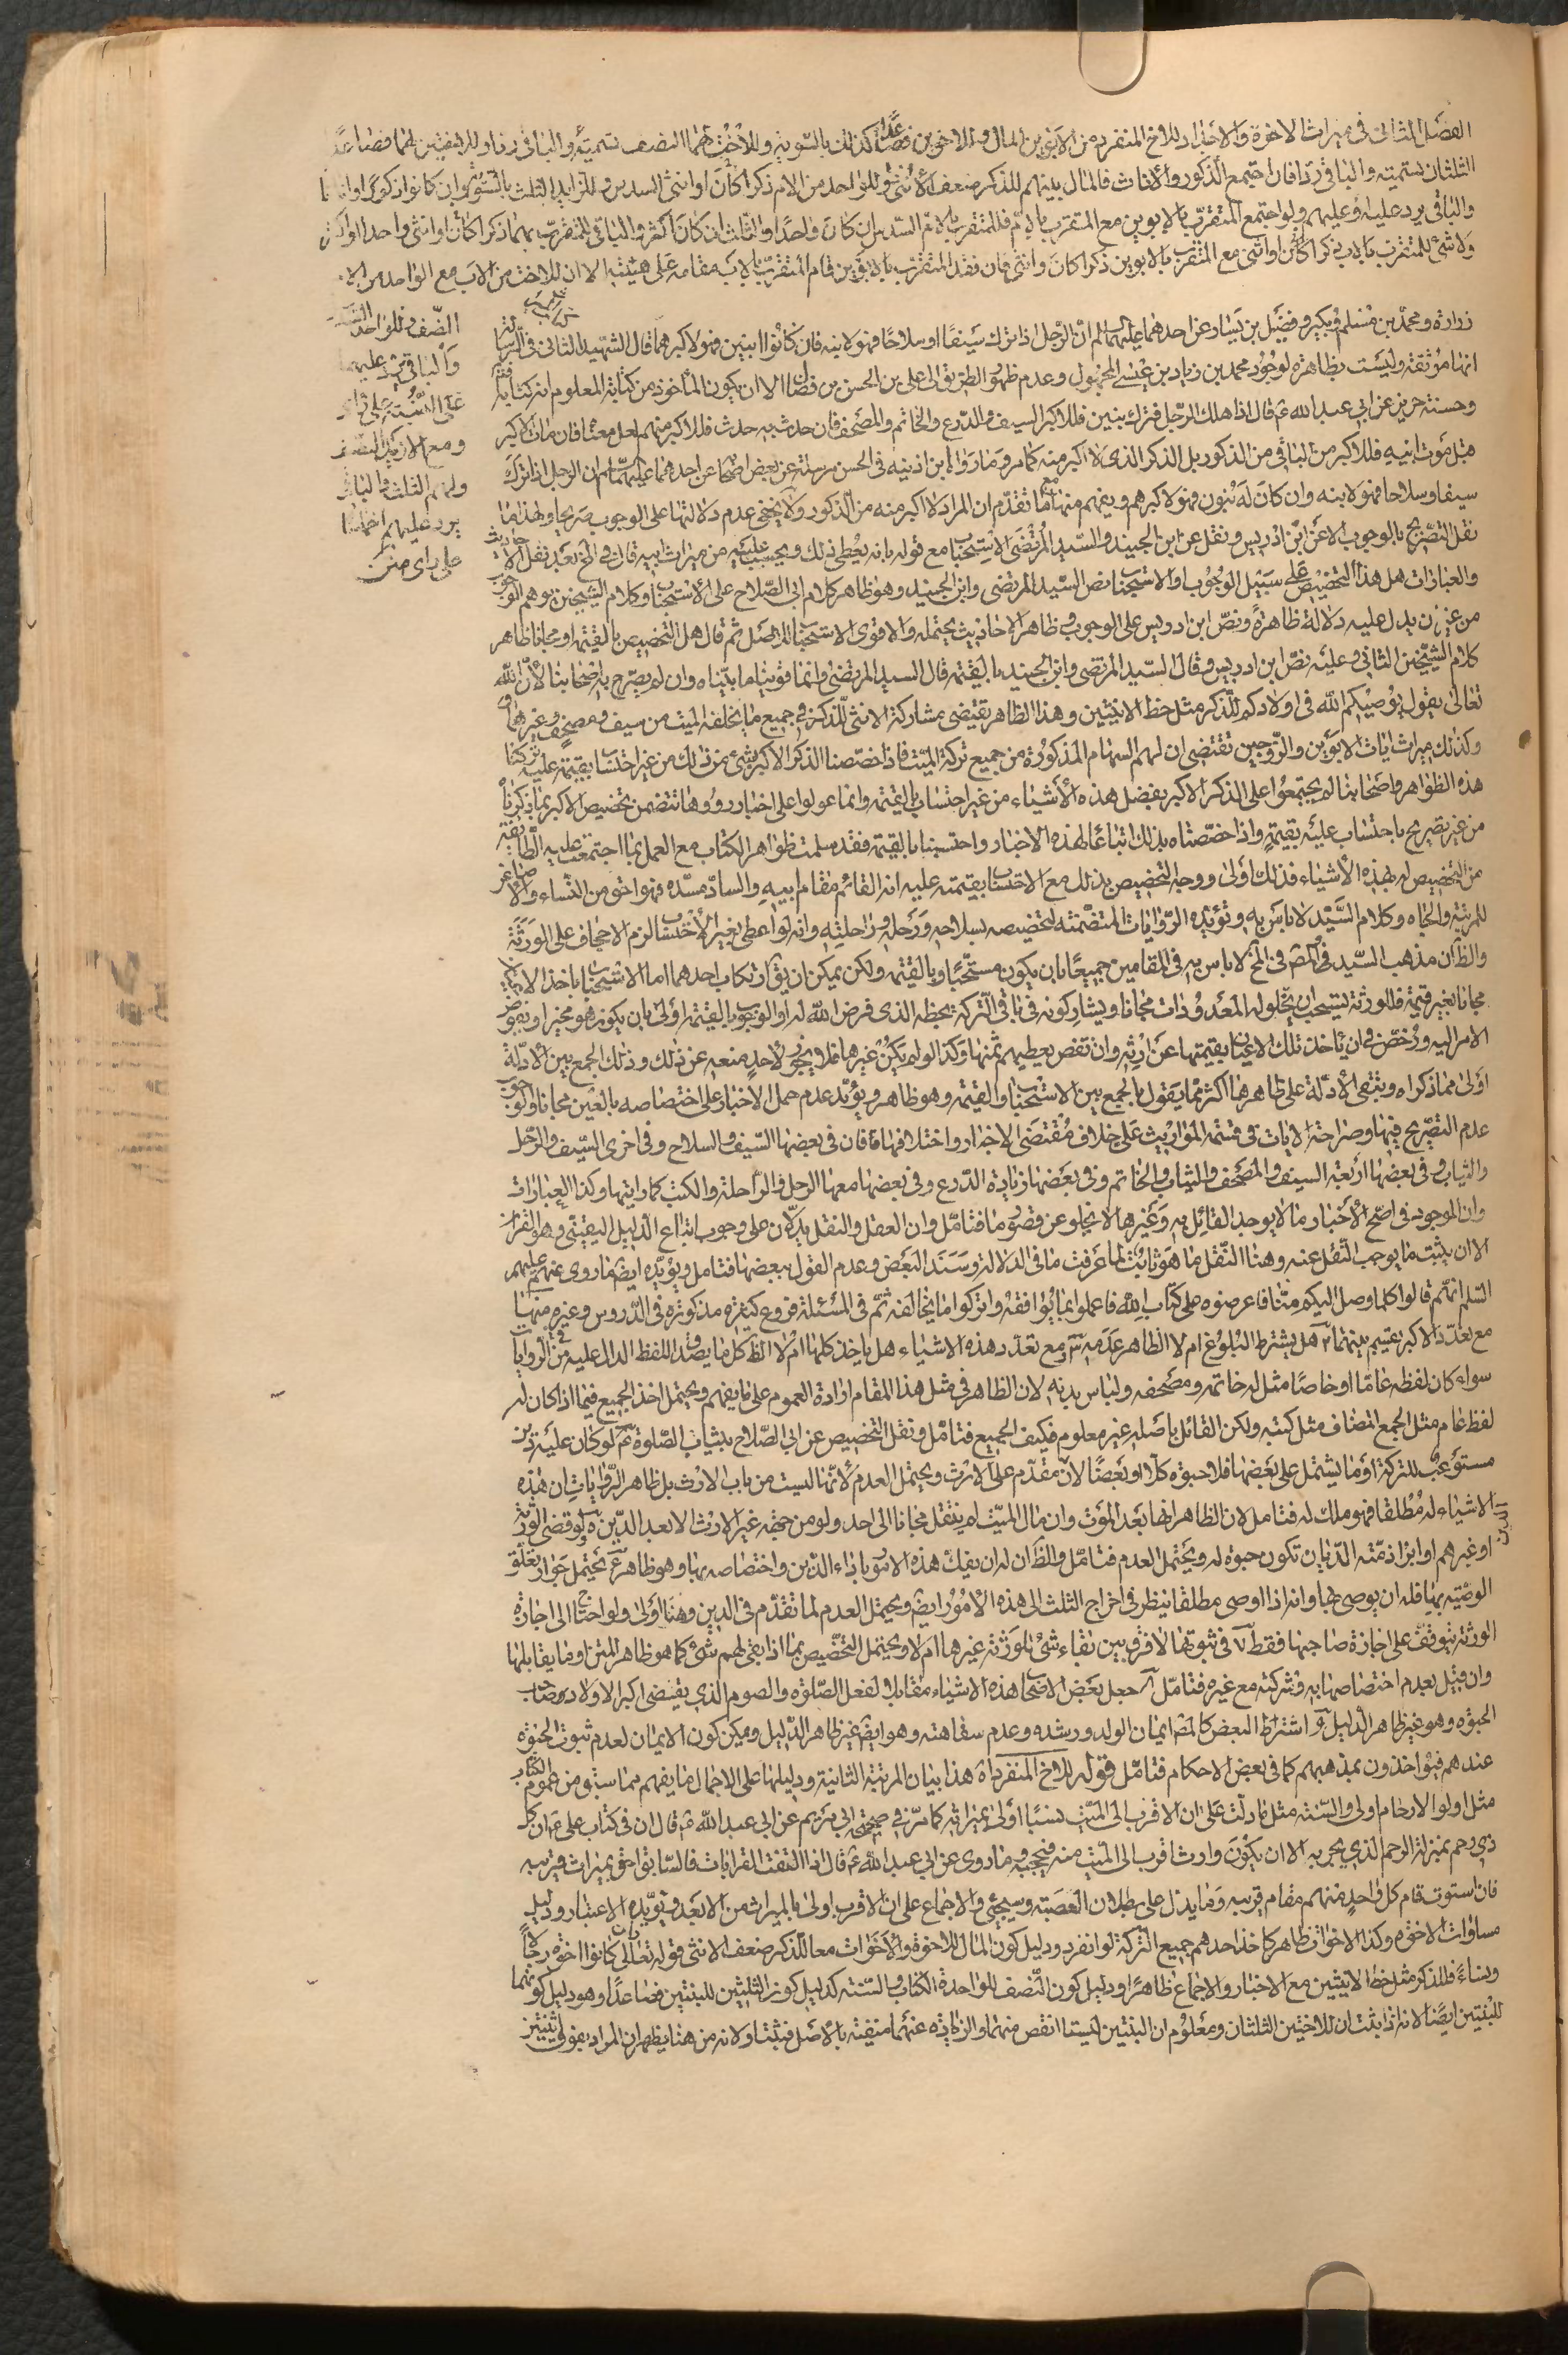 الفصل الثانى فى ميراث الاخوة والاجداد للاخ المنفرد من الابوين المال وللاخوين فصاعدا كذلك بالسوية وللاخت لهما النصف تسمية والباقى ردا وللاختين لهما فصاعدا
الثلثان بتسميته والباقى ردا فان اجتمع الذكور والاناث فالمال بينهم للذكر ضعف الانثى وللواحد من الام ذكرا كان او انثى السدس وللزايد الثلث بالسوية وان كانوا ذكورا او اناثا
والباقى يرد عليه او عليهم ولو اجتمع المتقرب بالابوين مع المتقرب بالام فللمتقرب بالام السدس ان كان واحدا والثلث ان كان اكثر والباقى للمتقرب بهما ذكرا كان او انثى واحدا او اكثر
ولا شئ للمتقرب بالاب ذكرا كان او انثى مع المتقرب بالابوين ذكرا كان وانثى فان فقد المتقرب بالابوين قام المتقرب بالاب مقامه على هيئته الا ان للاخت من الاب مع الواحد من الام
النصف وللواحد السدس
والباقى يرد عليهما
على النسبة على راى
ومع الازيد النصف
ولهم الثلث والباقى
يرد عليهم اخماسا
على راى متن
زرارة ومحمد بن مسلم وبكير وفضيل بن يسار عن احدهما عليهما السلم ان الرجل اذا ترك سيفا او سلاحا فهو لابنه فان كانوا ابنين فهو لاكبرهما قال الشهيد الثانى فى الرسالة
انها موثقة وليست بظاهرة لوجود محمد بن زياد بن عيسى المجهول وعدم ظهور الطريق الى على بن الحسن بن فضال الا ان يكون المأخوذ من كتابه المعلوم انه كتابه فتأمل
وحسنة حريز عن ابى عبد الله ع قال اذا هلك الرجل فترك بنين فللاكبر السيف والدرع والخاتم والمصحف فان حدث به حدث فللاكبر منهم لعل معناه فان مات الاكبر
قبل موت ابيه فللاكبر من الباقى من الذكور بل الذكر الذى لا اكبر منه كما مر وما رواه ابن اذينه فى الحسن مرسلة عن بعض اصحابه عن احدهما عليهما السلم ان الرجل اذا ترك
سيفا وسلاحا فهو لابنه وان كان له بنون فهو لاكبرهم ويفهم منها مع ما تقدم ان المراد لا اكبر منه من الذكور ولا يخفى عدم دلالتها على الوجوب صريحا ولهذا ما
نقل التصريح بالوجوب الا عن ابن ادريس ونقل عن ابن الجنيد والسيد المرتضى الاستحباب مع قوله بانه يعطى ذلك ويحسب عليه من ميراث ابيه قال فى لخ بعد نقل الاحاديث
والعبارات هل هذا التخصيص على سبيل الوجوب او الاستحباب نص السيد المرتضى وابن الجنيد وهو ظاهر كلام ابى الصلاح على الاستحباب وكلام الشيخين يوهم الوجوب
من غير ان يدل عليه دلالة ظاهرة ونص ابن ادريس على الوجوب وظاهر الاحاديث يحتمله والاقوى الاستحباب للاصل ثم قال هل التخصيص بالقيمة او مجانا ظاهر
كلام الشيخين الثانى وعليه نص ابن ادريس وقال السيد المرتضى وابن الجنيد بالقيمة قال السيد المرتضى وانما قوينا ما بيناه وان لم يصرح به اصحابنا لان الله
تعالى يقول يوصيكم الله فى اولادكم للذكر مثل حظ الانثيين وهذا الظاهر يقتضى مشاركة الانثى للذكر فى جميع ما يخلفه الميت من سيف ومصحف وغيرهما
وكذلك ميراث ايات الابوين والزوجين تقتضى ان لهم السهام المذكورة من جميع تركة الميت فاذا خصصنا الذكر الاكبر بشئ من ذلك من غير احتساب بقيمته عليه تركنا
هذه الظواهر واصحابنا لم يجتمعوا على الذكر الاكبر بفضل هذه الاشياء من غير احتساب بالقيمة وانما عولوا على اخبار رووها تتضمن تخصيص الاكبر بما ذكرناه
من غير تصريح باحتساب عليه بقيمته واذا خصصناه بذلك اتباعا لهذه الاخبار واحتسبنا بالقيمة فقد سلمت ظواهر الكتاب مع العمل بما اجتمعت عليه الطائفة
من التخصيص له بهذه الاشياء فذلك اولى ووجه التخصيص بذلك مع الاحتساب بقيمته عليه انه القائم مقام ابيه والساد مسده فهو احق من النساء والاصاغر
للمرتبة والجاه وكلام السيد لا باس به وتؤيده الروايات المتضمنة لتخصيصه بسلاحه ورحله وراحلته وانه لو اعطى بغير الاحتساب لزم الاجحاف على الورثة
والظ ان مذهب السيد فى المص فى لخ لا باس به فى المقامين جميعا بان يكون مستحبا وبالقيمة ولكن يمكن ان يق ارتكاب احدهما اما الاستحباب باخذ الاكبر
مجانا بغير قيمة فللورثة يستحب ان يخلوا له المعدودات مجانا ويشاركونه فى باقى التركة بحظه الذى فرض الله له او الوجوب بالقيمة اولى بان يكون هو مخيرا ويفوض
الامر اليه ورخص فى ان ياخذ تلك الاعيان بقيمتها عن ارثه وان تقص يعطيهم ثمنها وكذا لو لم يكن غيرها فلا يجوز لاحد منعه عن ذلك وذلك الجمع بين الادلة
اولى مما ذكراه ويبقى الادلة على ظاهرها اكثر مما يقول بالجمع بين الاستحباب والقيمة وهو ظاهر ويؤيد عدم حمل الاخبار على اختصاصه بالعين مجانا والوجوب
عدم التصريح فيها وصراحة الايات فى قسمة المواريث على خلاف مقتضى الاخبار واختلافها فان فى بعضها السيف والسلاح وفى اخرى السيف والرحل
والثياب وفى بعضها اربعة السيف والمصحف والثياب والخاتم وفى بعضها زيادة الدرع وفى بعضها معها الرحل والراحلة والكتب كما رايتها وكذا العبارات
وان الموجود فى اصح الاخبار ما لا يوجد القائل به وغيرها لا يخلو عن قصور ما فتامل وان العقل والنقل يدلان على وجوب اتباع الدليل اليقينى وهو القران
الا ان يثبت ما يوجب النقل عنه وهنا النقل ما هو ثابت لما عرفت ما فى الدلالة وسند البعض وعدم القول ببعضها فتامل ويؤيده ايضا ما روى عنهم عليهم
السلم انهم قالوا كلما وصل اليكم منا فاعرضوه على كتاب الله فاعملوا بما يوافقه واتركوا ما يخالفه ثم فى المسئلة فروع كثيرة مذكورة فى الدروس وغيره منها
مع تعدد الاكبر يقسم بينهما هل يشترط البلوغ ام لا الظاهر عدمه مع تعدد هذه الاشياء هل ياخذ كلها ام لا الظ كل ما يصدق اللفظ الدال عليه فى الروايات
سواء كان لفظه عاما او خاصا مثل له خاتمه ومصحفه ولباس بدنه لان الظاهر فى مثل هذا المقام ارادة العموم على ما يفهم ويحتمل اخذ الجميع فيما اذا كان له
لفظ عام مثل الجمع المضاف مثل كتبه ولكن القائل باصله غير معلوم فكيف الجميع فتامل ونقل التخصيص عن ابى الصلاح بثياب الصلوة لو كان عليه دين
مستوعب للتركة او ما يشتمل على بعضها فلا حبوة كلا او بعضا لانه مقدم على الارث ويحتمل العدم لانها ليست من باب الارث بل ظاهر الروايات ان هذه
الاشياء له مطلقا فهو ملك له فتامل لان الظاهر انها بعد الموت وان مال الميت لم ينتقل مجانا الى احد ولو من جهة غير الارث الا بعد الدين لو قضى الورثة الدين
او غيرهم او ابراء ذمته الديان تكون حبوة له ويحتمل العدم فتامل والظ ان له ان يفك هذه الامور باداء الدين واختصاصه بها وهو ظاهر يحتمل جواز تعلق
الوصية بها فله ان يوصى بها وانه اذا اوصى مطلقا ينظر فى اخراج الثلث الى هذه الامور ايض ويحتمل العدم لما تقدم فى الدين وهنا اولى ولو احتاج الى اجازة
الورثة يتوقف على اجازة صاحبها فقط فى ثبوتها لا فرق بين بقاء شئ للورثة غيرها ام لا ويحتمل التخصيص بما اذا بقى لهم شئ كما هو ظاهر المتن وما يقابلها
وان قيل بعدم اختصاصها به وشركته مع غيره فتامل جعل بعض الاصحاب هذه الاشياء مقابلة لفعل الصلوة والصوم الذى يقتضى اكبر الاولاد صاحب
الحبوة وهو غير ظاهر الدليل اشتراط البعض كالمص ايمان الولد ورشده وعدم سفاهته وهو ايض غير ظاهر الدليل ويمكن كون الايمان لعدم ثبوت الحبوة
عندهم فيؤاخذون بمذهبهم كما فى بعض الاحكام فتامل قوله للاخ المنفرد اه هذا بيان المرتبة الثانية ودليلها على الاجمال ما يفهم مما سبق من عموم الكتاب
مثل اولوا الارحام اولى والسنة مثل ما دلت على ان الاقرب الى الميت نسبا اولى بميراثه كما مر فى صحيحة ابى مريم عن ابى عبد الله ع قال ان فى كتاب على ع ان كل
ذى رحم بمنزلة الرحم الذى يجر به الا ان يكون وارث اقرب الى الميت منه فيحجبه وما روى عن ابى عبد الله ع قال اذا التفت القرابات فالسابق احق بميراث قريبه
فان استوت قام كل واحد منهم مقام قريبه وما يدل على بطلان العصبة وسيجئ والاجماع على ان الاقرب اولى بالميراث من الابعد ويؤيده الاعتبار ودليل
مساوات الاخوة وكذا الاخوات ظاهر كاخذ احدهم جميع التركة لو انفرد ودليل كون المال للاخوة والاخوات معا للذكر ضعف الانثى قوله تعالى وان كانوا اخوة رجالا
ونساء فللذكر مثل حظ الانثيين مع الاخبار والاجماع ظاهرا ودليل كون النصف للواحدة الكتاب والسنة كدليل كون الثلثين للبنتين فصاعدا وهو دليل كونهما
للبنتين ايضا لانه اذا ثبت ان للاختين الثلثان ومعلوم ان البنتين ليستا انقص منهما والزيادة عنهما منفية بالاصل فثبتا ولانه من هنا يظهر ان المراد بفوق اثنتين